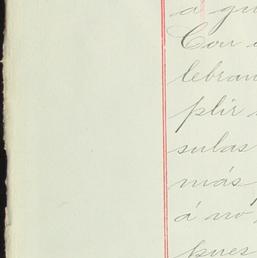 a qu
Con
lebran
plir
sulas
más
á no
pues